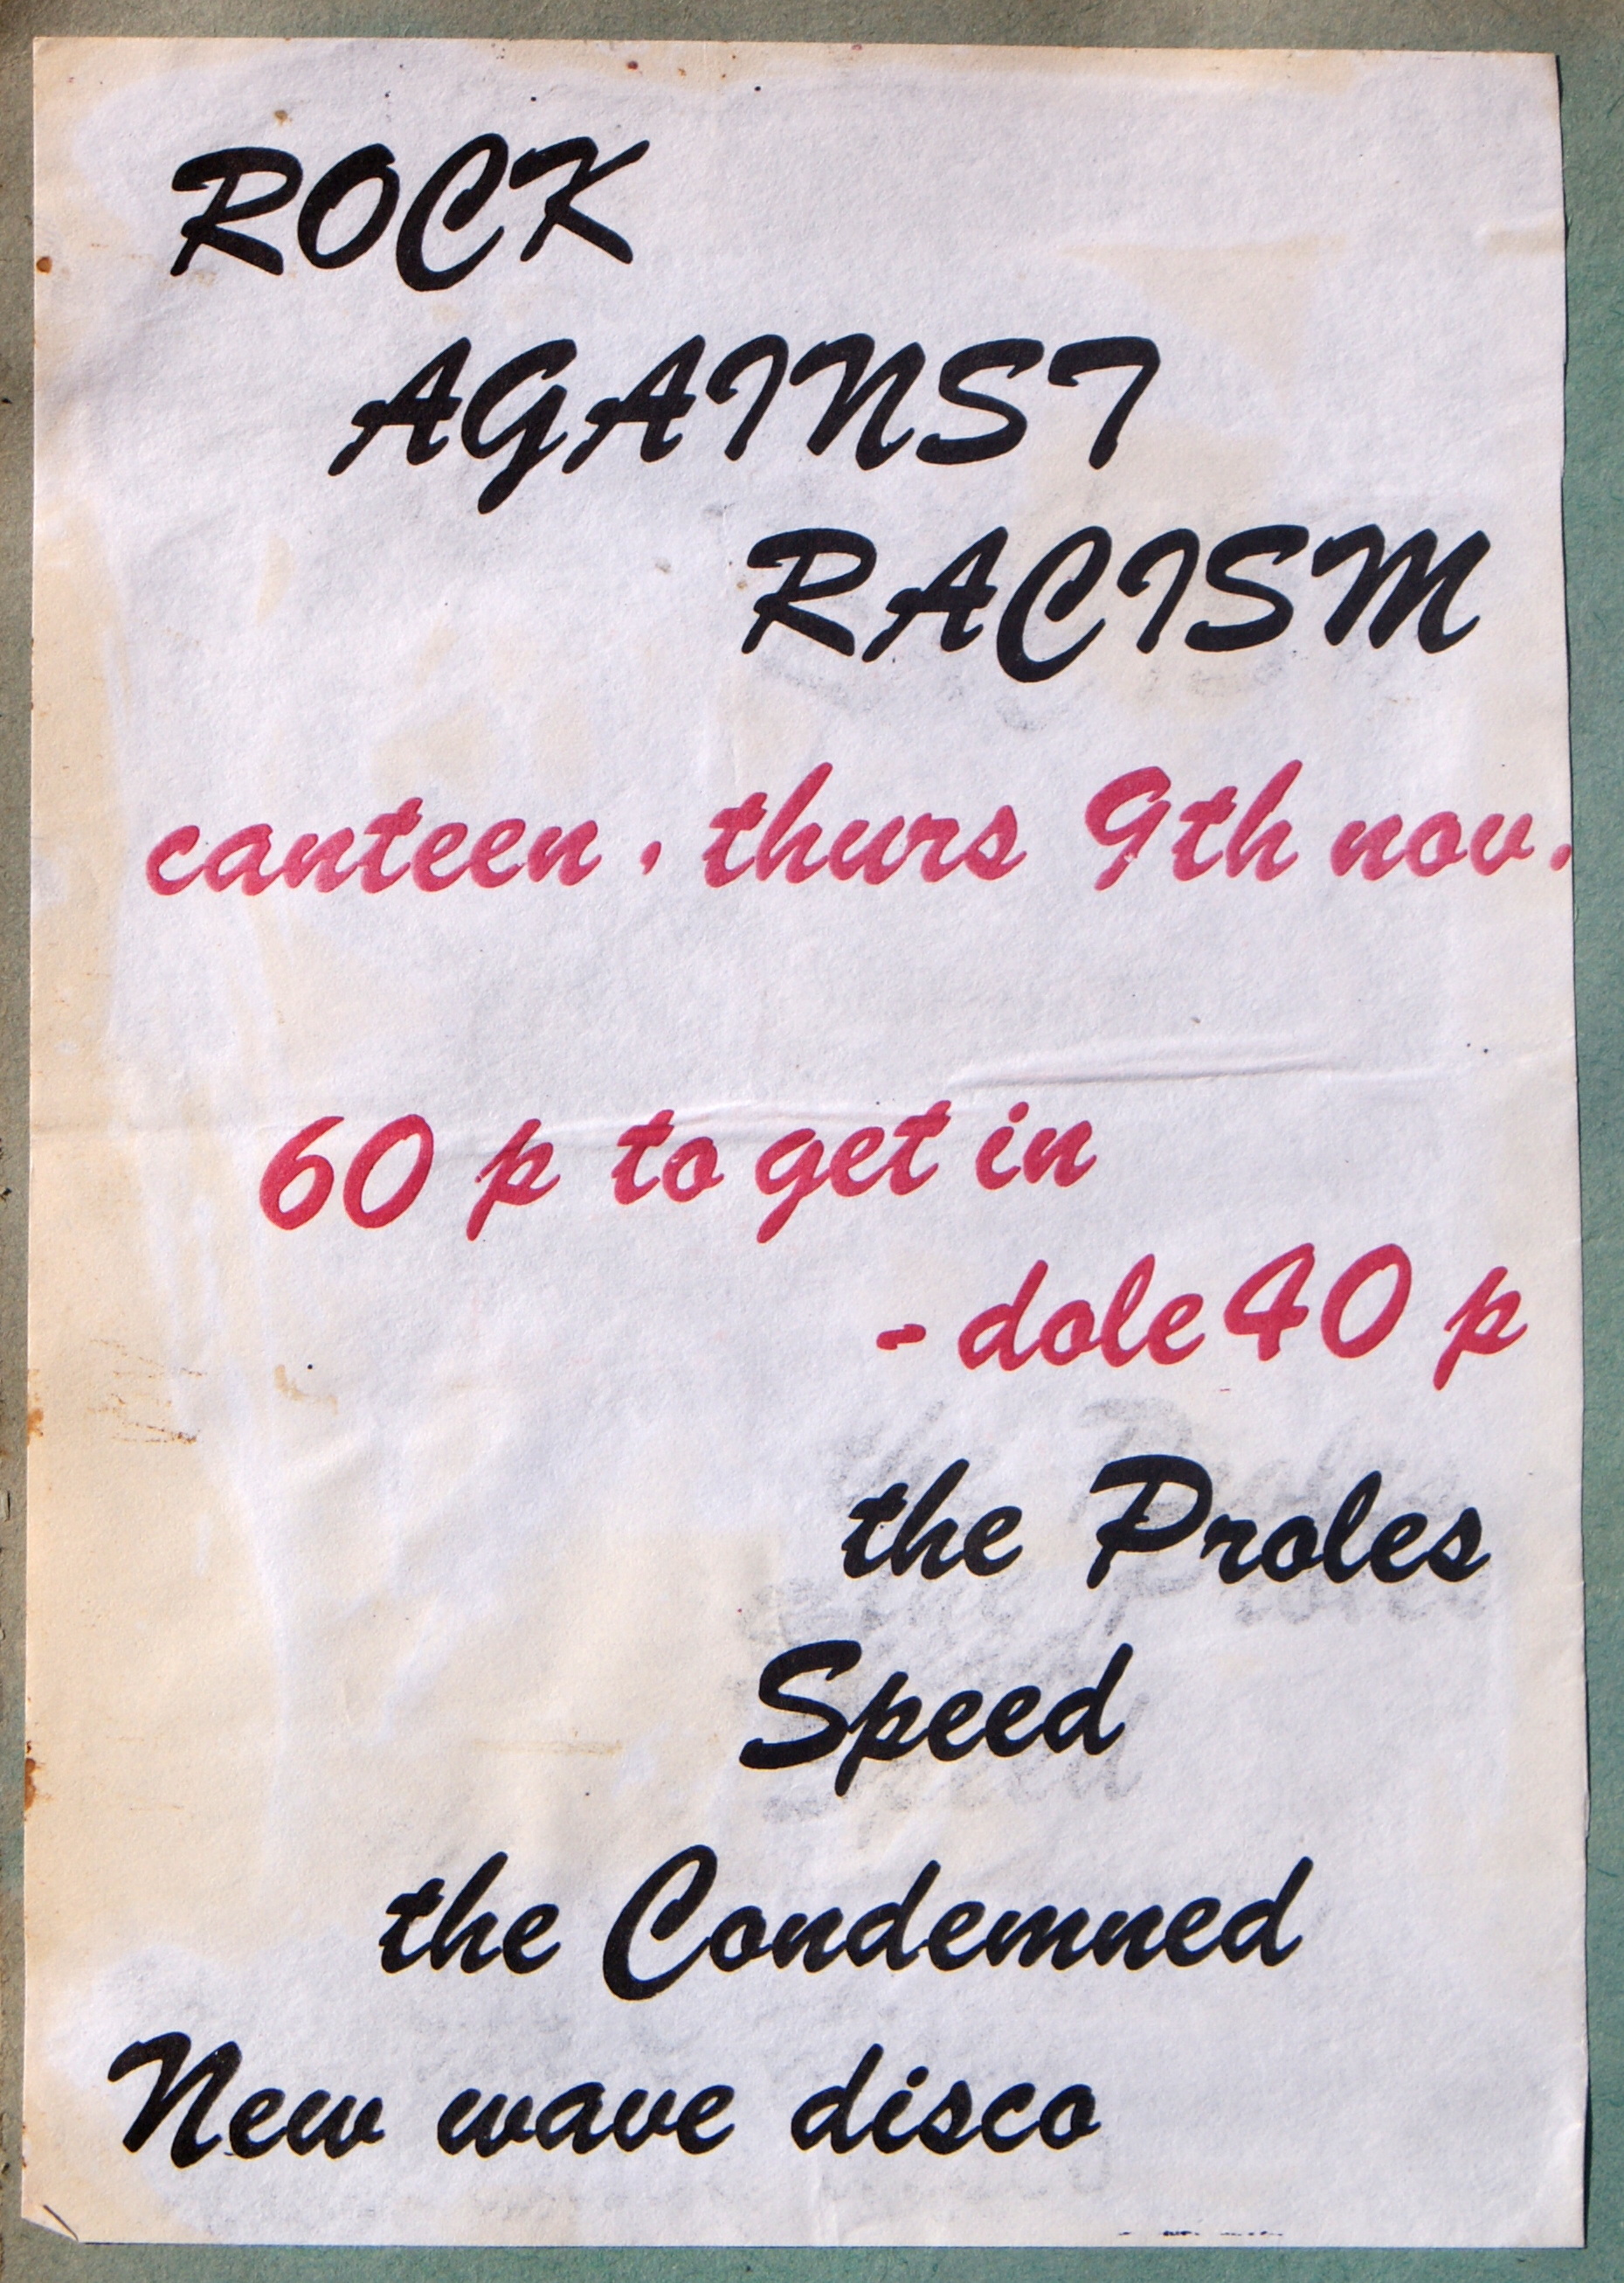 ROCK
AGAINST
RACISM
canteen. thurs 9th nov.
60 p to get in
- dole 40 p
the Proles
Speed
the Condemned
New wave disco